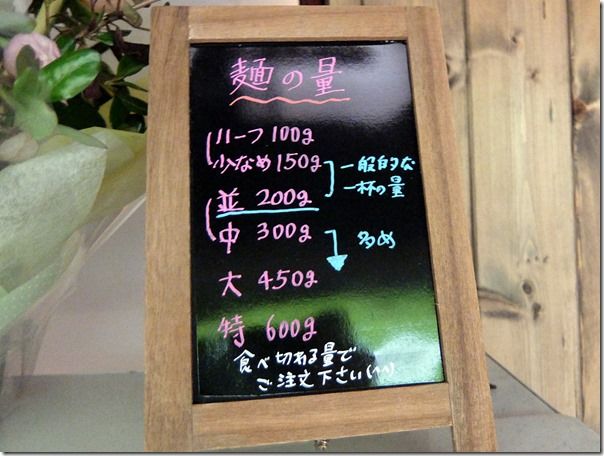 麺の量
ハーフ 100g
少なめ 150g
一般的な
一杯の量
並 200g
中 300g
多め
大 450g
特 600g
食べ切れる量で
ご注文下さい(^^)